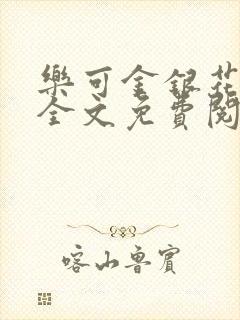 樂可金銀花
全文免費閱
喀山魯賓